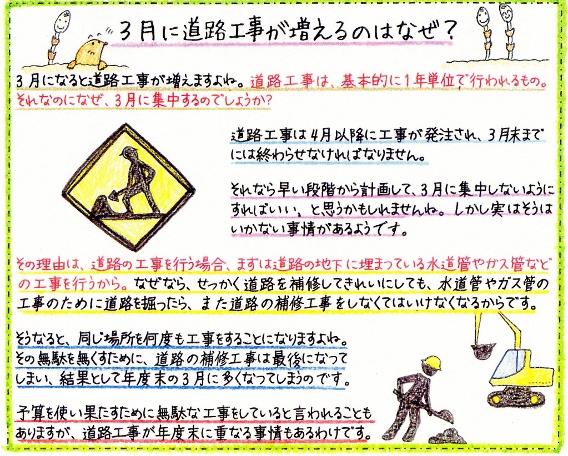 3月に道路工事が増えるのはなぜ？
3月になると道路工事が増えますよね。道路工事は、基本的に1年単位で行われるもの。
それなのになぜ、3月に集中するのでしょうか？
道路工事は4月以降に工事が発注され、3月末まで
には終わらせなければなりません。
それなら早い段階から計画して、3月に集中しないように
すればいい、と思うかもしれませんね。しかし実はそうは
いかない事情があるようです。
その理由は、道路の工事を行う場合、まずは道路の地下に埋まっている水道管やガス管など
の工事を行うから。なぜなら、せっかく道路を補修してきれいにしても、水道管やガス管の
工事のために道路を掘ったら、また道路の補修工事をしなくてはいけなくなるからです。
そうなると、同じ場所を何度も工事をすることになりますよね。
その無駄を無くすために、道路の補修工事は最後になって
しまい、結果として年度末の3月に多くなってしまうのです。
予算を使い果たすために無駄な工事をしていると言われることも
ありますが、道路工事が年度末に重なる事情もあるわけです。